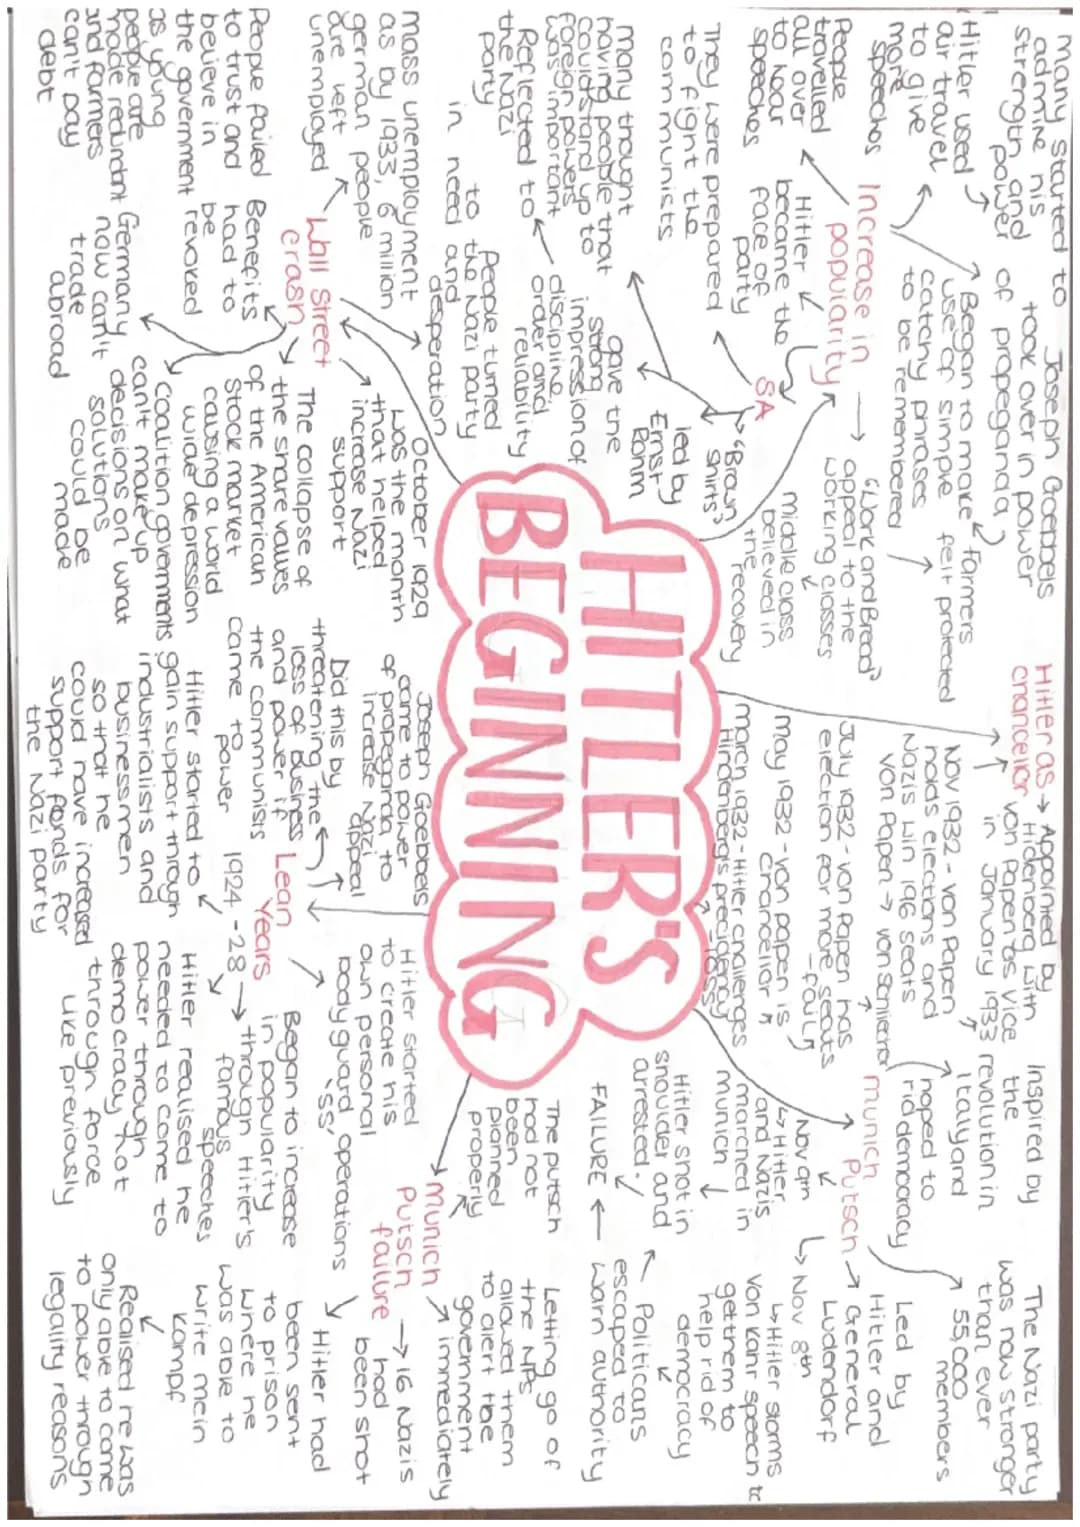 HITLER'S
BEGINNING
Hitler as
chancellor
→ Appointed by
Hidenberg with
von Papen as vice
in January 1933
Nov 1932 - von Papen
holds elections and
Nazis win 196 seats
von Papen → von Schliecher
July 1932 - von Papen has
election for more seats
- fail
May 1932 - von papen is
chancellor
march 1932 - Hitler challenges
Hindenberg's precidency
- loss
Munich
Putsch
Inspired by
the
revolution in
Italy and
hoped to
rid democracy
The Nazi party
was now stronger
than ever
55,000
members
Led by
Hitler and
General
Ludendorf
Nov 8th
Hitler storms
von Kahr speech to
get them to
help rid of
democracy
Politicans
escaped to
warn authority
Nov 9th
Hitler
and Nazis
marched in
munich
Hitler shot in
shoulder and
arrested.
FAILURE
Munich
Putsch
failure
The putsch
had not
been
planned
properly
Letting go of
the NPs
allowed them
to alert the
government
immediately
→ 16 Nazis
had
been shot
Hitler had
been sent
to prison
where he
was able to
write mein
Kampf
Realised he was
only able to come
to power through
legality reasons
Lean
Years
1924 - 28
Hitler started
to create his
own personal
bodyguard operations
'SS'
Began to increase
in popularity
through Hitler's
famous
speeches
Hitler realised he
needed to come to
power through
democracy not
through force
like previously
Joseph Goebbels
came to power
of propaganda to
increase Nazi
appeal
Did this by
threatening the
loss of business
and power if
the communists
came to power
Hitler started to
gain support through
industrialists and
businessmen
so that he
could have increased
support funds for
the Nazi party
Wall Street
crash
October 1929
was the month
that helped
increase Nazi
support
The collapse of
the share values
of the American
Stock market
causing a world
wide depression
Coalition governments
can't make up
decisions on what
solutions
could be
made
People turned
to the Nazi party
in need and
desperation
mass unemployment
as by 1933, 6 million
german people
are left
unemployed
Benefits
had to
be
revoked
People failed
to trust and
believe in
the government
as young
people are
made redundant
and farmers
can't pay
debt
Germany
now can't
trade
abroad
Increase in
popularity
many started to
admire his
strength and
power
Hitler used
air travel
to give
more
speeches
People
travelled
all over
to hear
speeches
Hitler
became the
face of
party
Joseph Goebbels
took over in power
of propeganda
Began to make
use of simple
catchy phrases
to be remembered
farmers
felt protected
"Work and Bread"
appeal to the
working classes
middle class
believed in
the recovery
SA
"Brown
shirts"
led by
Ernst
Rohm
They were prepared
to fight the
communists
gave the
strong
impression of
discipline,
order and
reliability
many thought
having people that
could stand up to
foreign powers
was important
Reflected to
the Nazi
party